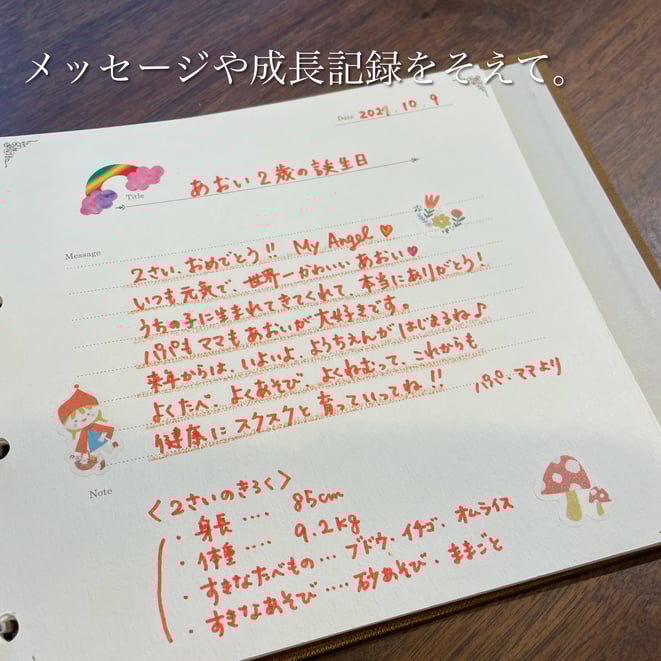 メッセージや成長記録をそえて。
Date 2021.10.9
Title あおい2歳の誕生日
Message
2さい、おめでとう!! My Angel♥
いつも元気で 世界一かわいい あおい♥
うちの子に生まれてきてくれて 本当にありがとう!
パパもママもあおいが大好きです。
来年からは、いよいよ、ようちえんがはじまるね♪
よくたべ、よくあそび、よくねむって、これからも
健康にスクスクと育っていってね!!
パパ・ママより
Note
<2さいのきろく>
・身長‥‥85cm
・体重‥‥9.2kg
・すきなたべもの‥‥ブドウ、イチゴ、オムライス
・すきなあそび‥‥砂あそび・ままごと